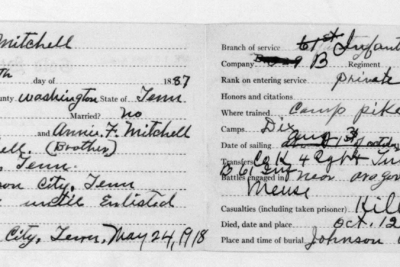 Mitchell
th day of 1887
unty Washington State of Tenn
Married? no
and Annie F. Mitchell
ell. (Brother)
, Tenn.
son City, Tenn
untill Enlisted
City, Tenn, May 24, 1918
Branch of service 61st Infant
Company B Regiment
Rank on entering service private
Honors and citations
Where trained Camp pike
Camps Dix
Date of sailing
Transfers Co K 4
Battles engaged in near
Meuse
Casualties (including taken prisoner) Kill
Died, date and place Oct. 12
Place and time of burial Johnson